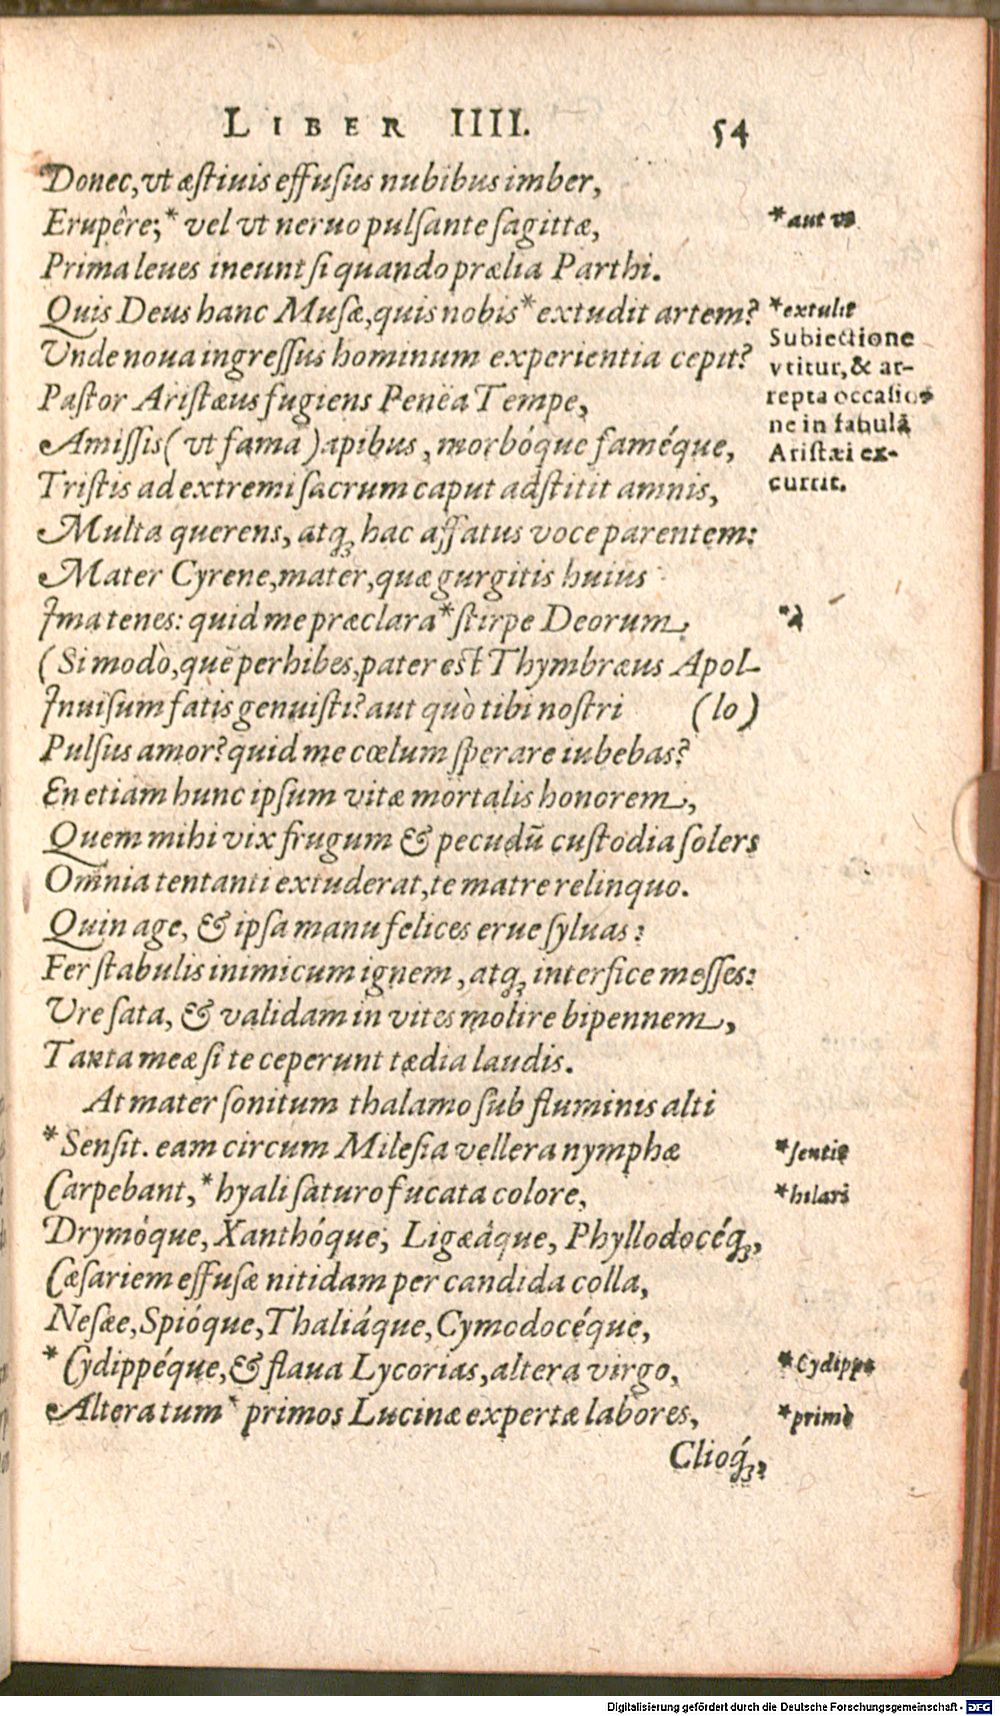 LIBER IIII. 54
Donec, vt æſtiuis effuſus nubibus imber,
Erupêre; * vel vt neruo pulſante ſagittæ,
*aut vt
Prima leues ineunt ſi quando prælia Parthi.
Quis Deus hanc Muſæ, quis nobis * extudit artem?
*extulit
Vnde noua ingreſſus hominum experientia cepit?
Paſtor Ariſtæus fugiens Penëa Tempe,
Amiſſis (vt fama) apibus, morbóque faméque,
Triſtis ad extremi ſacrum caput adſtitit amnis,
Subiectione
vtitur, & ar-
repta occaſio-
ne in fabulã
Ariſtæi ex-
currit.
Multa querens, atq; hac affatus voce parentem:
Mater Cyrene, mater, quæ gurgitis huius
Ima tenes: quid me præclara * ſtirpe Deorum,
*à
(Si modò, quẽ perhibes, pater eſt Thymbræus Apol-
Inuiſum fatis genuiſti? aut quò tibi noſtri (lo)
Pulſus amor? quid me cœlum ſperare iubebas?
En etiam hunc ipſum vitæ mortalis honorem,
Quem mihi vix frugum & pecudũ cuſtodia ſolers
Omnia tentanti extuderat, te matre relinquo.
Quin age, & ipſa manu felices erue ſyluas:
Fer ſtabulis inimicum ignem, atq; interfice meſſes:
Vre ſata, & validam in vites molire bipennem,
Tanta meæ ſi te ceperunt tædia laudis.
At mater ſonitum thalamo ſub fluminis alti
*Senſit. eam circum Mileſia vellera nymphæ
*ſentit
Carpebant, * hyali ſaturo fucata colore,
*hilari
Drymóque, Xanthóque, Ligæáque, Phyllodocéq;,
Cæſariem effuſæ nitidam per candida colla,
Neſæe, Spióque, Thaliáque, Cymodocéque,
*Cydippéque, & flaua Lycorias, altera virgo,
*Cydippe
Altera tum * primos Lucinæ experta labores,
*primò
Clioq́;,
Digitalisierung gefördert durch die Deutsche Forschungsgemeinschaft - DFG